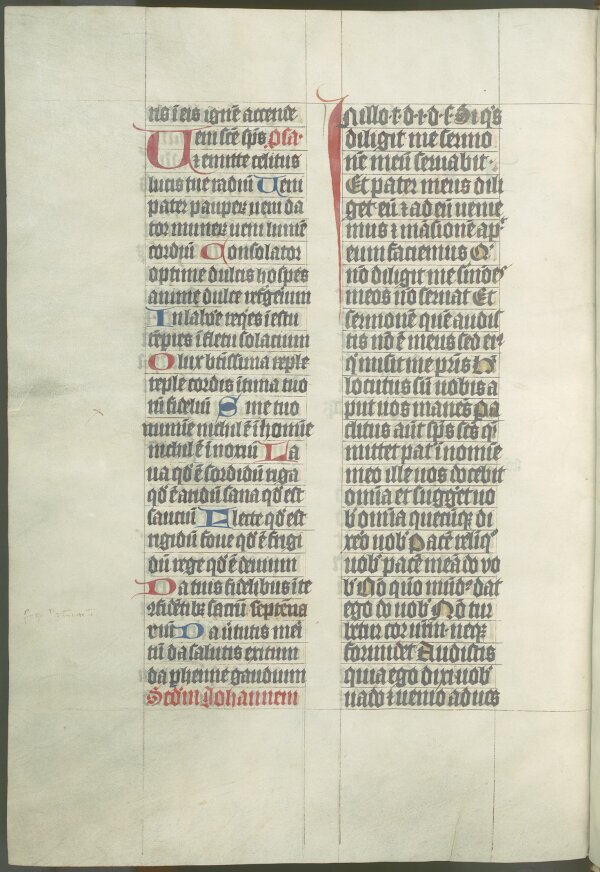 tris ī eis ignē accende
Veni sc̄e sp̄s P̄sa.
⁊ emitte celitus
lucis tue radiū Veni
pater pauper veni da
tor muner veni lumē
cordiū Consolator
optime dulcis hospes
anime dulce refrigeriū
In labōe reqies ī estu
tēpies ī fletu solacium
O lux btissima reple
reple cordis ītima tuo
rū fidelium Sine tuo
numine nichil ē ī homīe
nichil ē īnoxiū La
va qd̄ ē sordidū riga
qd̄ ē aridū sana qd̄ est
sauciū Flecte qd̄ est
rigidū fove qd̄ ē frigi
dū rege qd̄ ē devium
Da tuis fidelibus ī te
ↄfidētibz sacrū septena
rium Da v̄tutis meri
tū da salutis exitum
da p̄henne gaudium
Scd̄m Johannem
In illo t. d. i. d. s. Si q̄s
diligit me sermo
nē meū servabit.
Et pater meus dili
get eū ⁊ ad eū venie
mus ⁊ māsionē ap
eum faciemus Q
nō diligit me s̄mōes
meos nō servat Et
sermonē quē audis
tis nō ē meus sed ei
q̄ misit me pr̄is H
locutus sū vobis a
put vos manēs Pa
clitus aūt sp̄s sc̄s q̄
mittet pat̄ ī nomīe
meo ille vos docebit
omīa et sugḡet vo
b omīa quecūqz di
xero vob Pacē relīq
vob pacē meā do vo
b Nō quo mūd dat
ego do vob Nō tur
betur cor v̄rm neqz
formidet Audistis
quia ego dixi vob
vado ⁊ venio ad vos